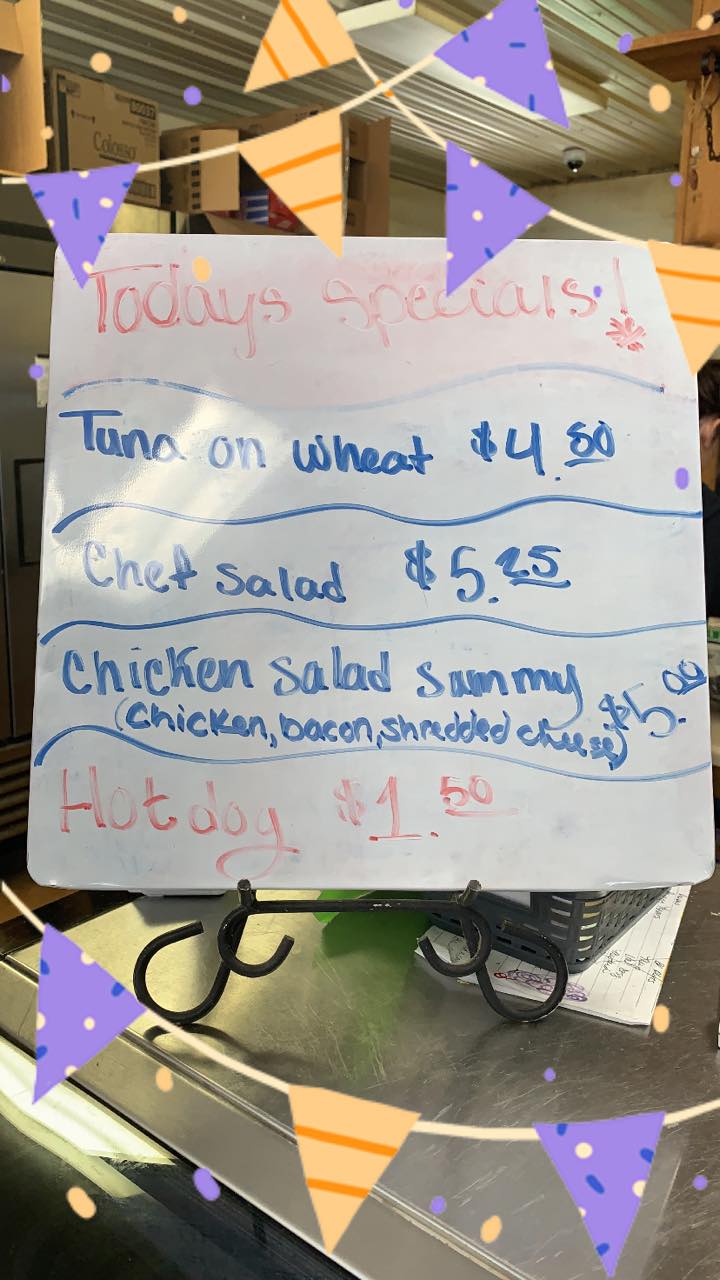 Colosso
Todays Specials!
Tuna on wheat $4.50
Chef Salad $5.25
Chicken Salad Sammy $5.00
(Chicken, bacon, shredded cheese)
Hot dog $1.50